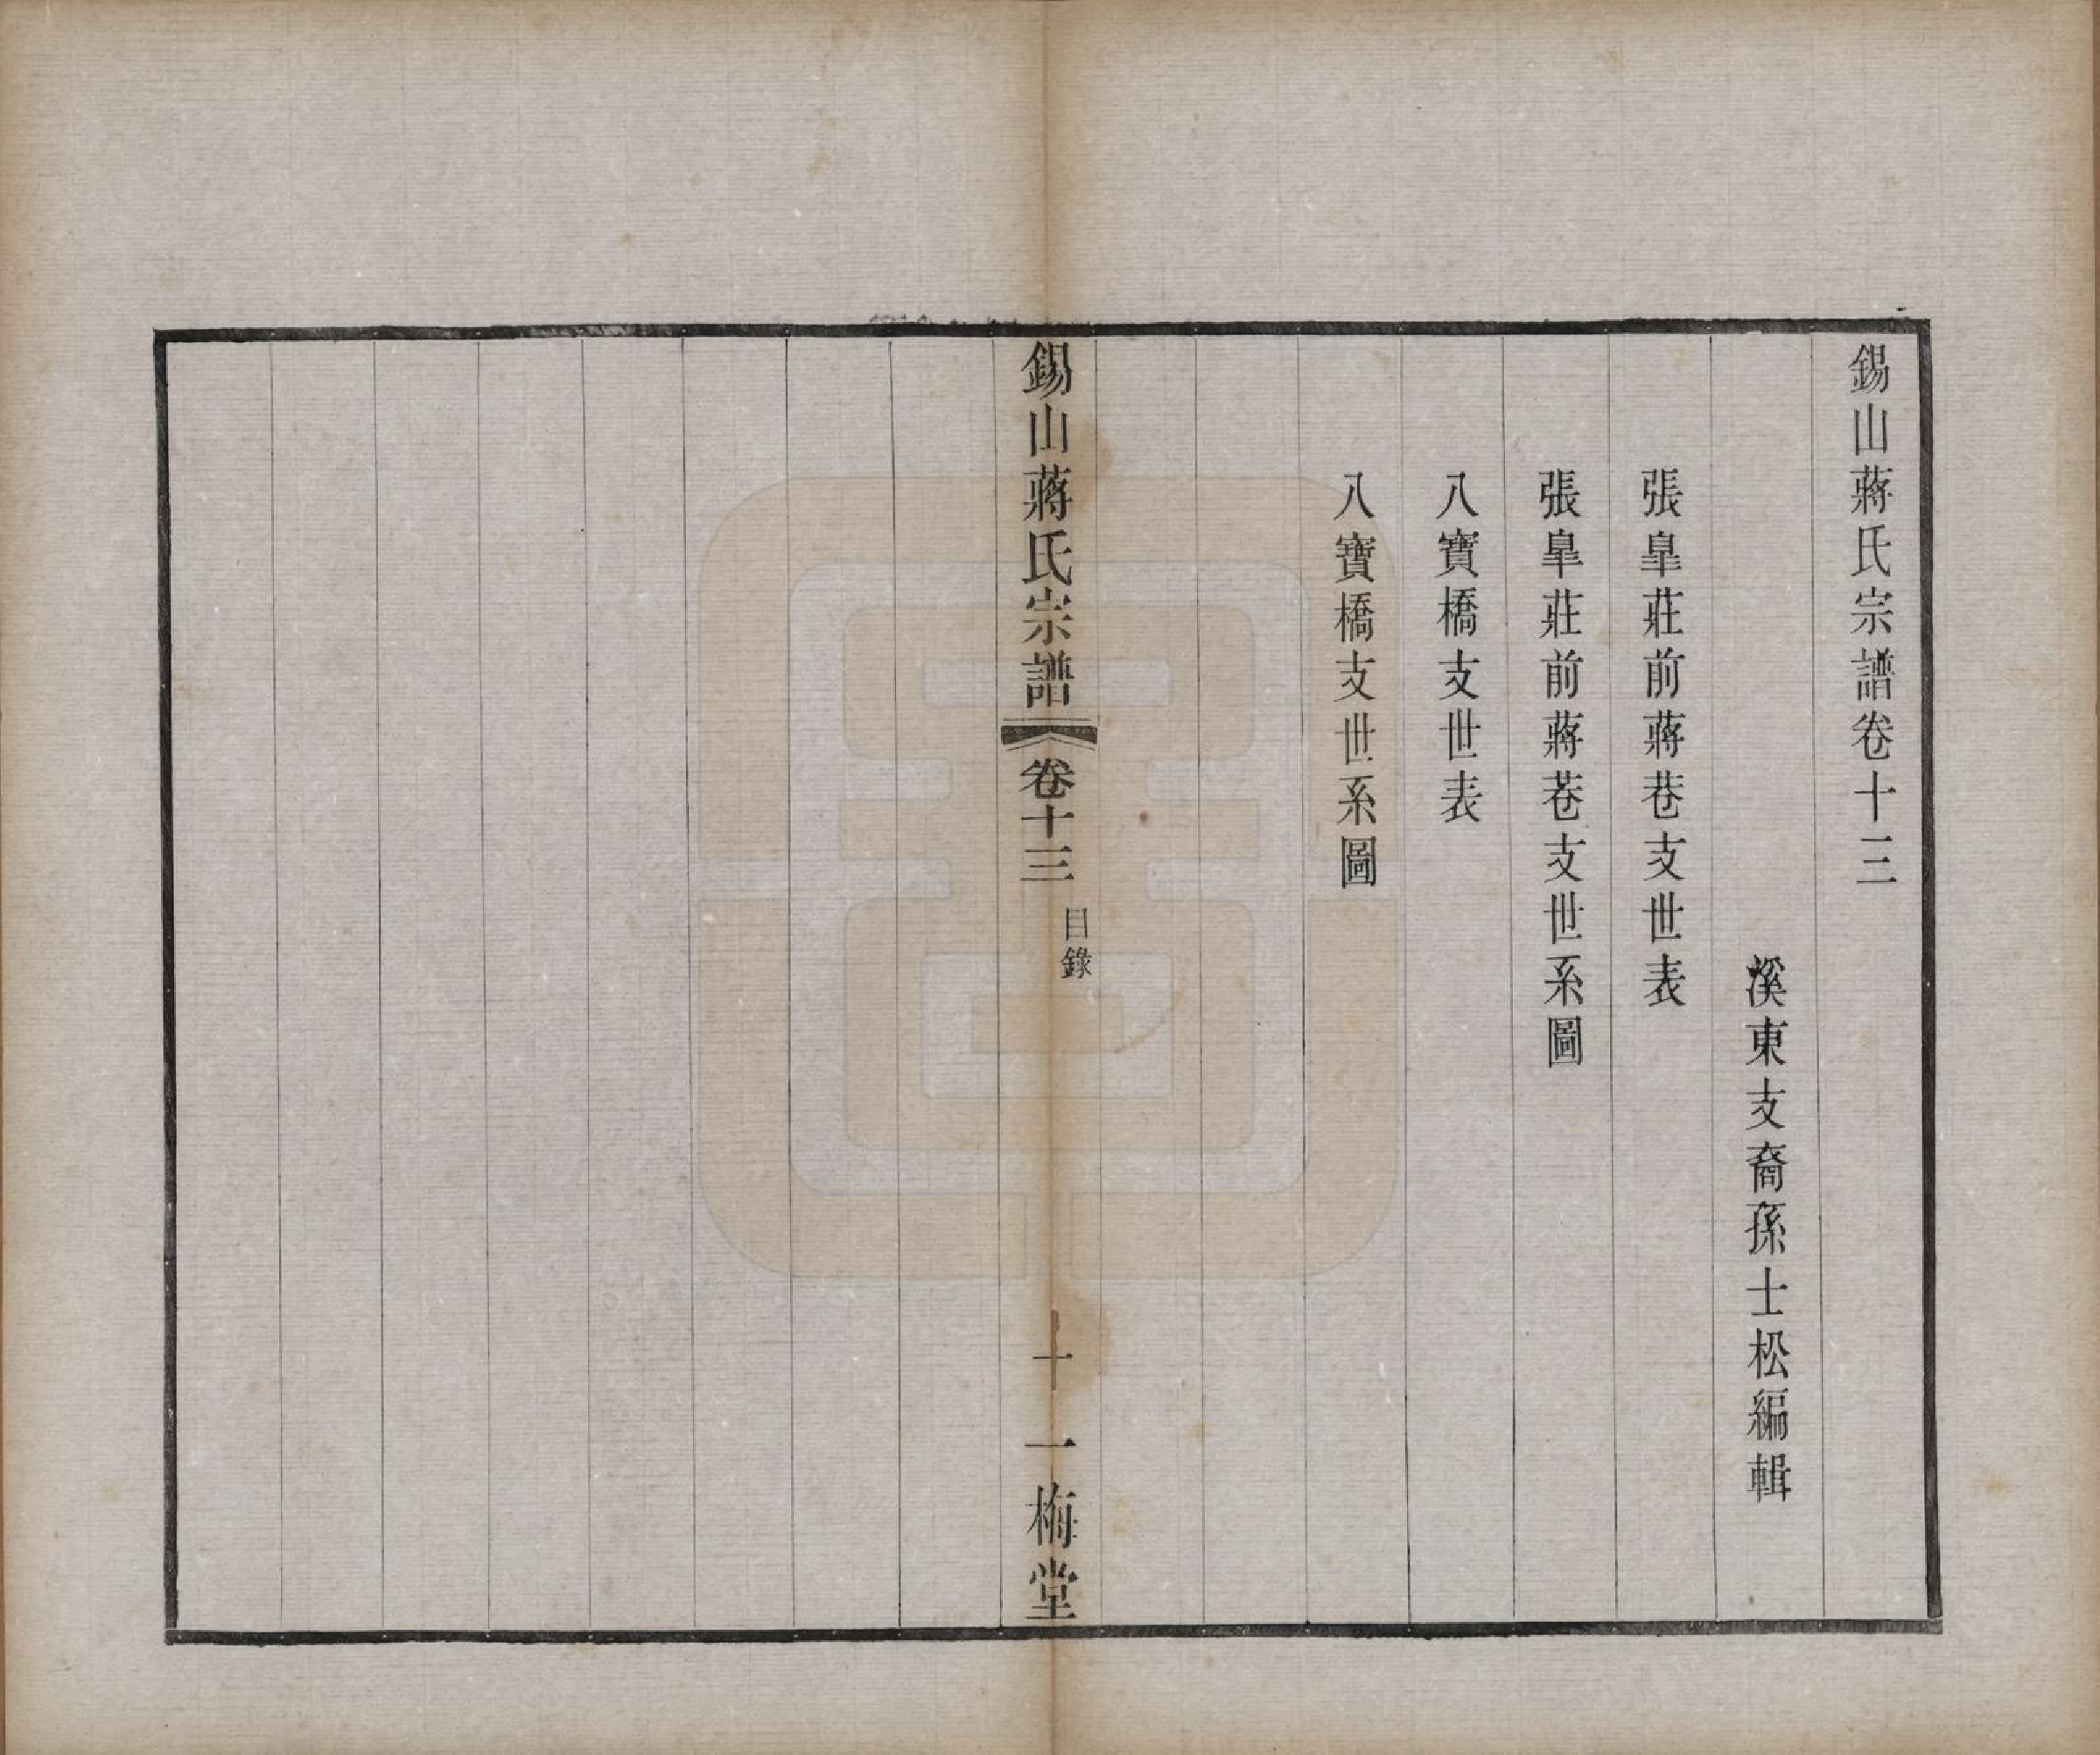 錫山蔣氏宗譜卷十三
溪東支裔孫士松編輯
張皐莊前蔣巷支世表
張皐莊前蔣巷支世系圖
八寶橋支世表
八寶橋支世系圖
錫山蔣氏宗譜
卷十三
目錄
十
一梅堂